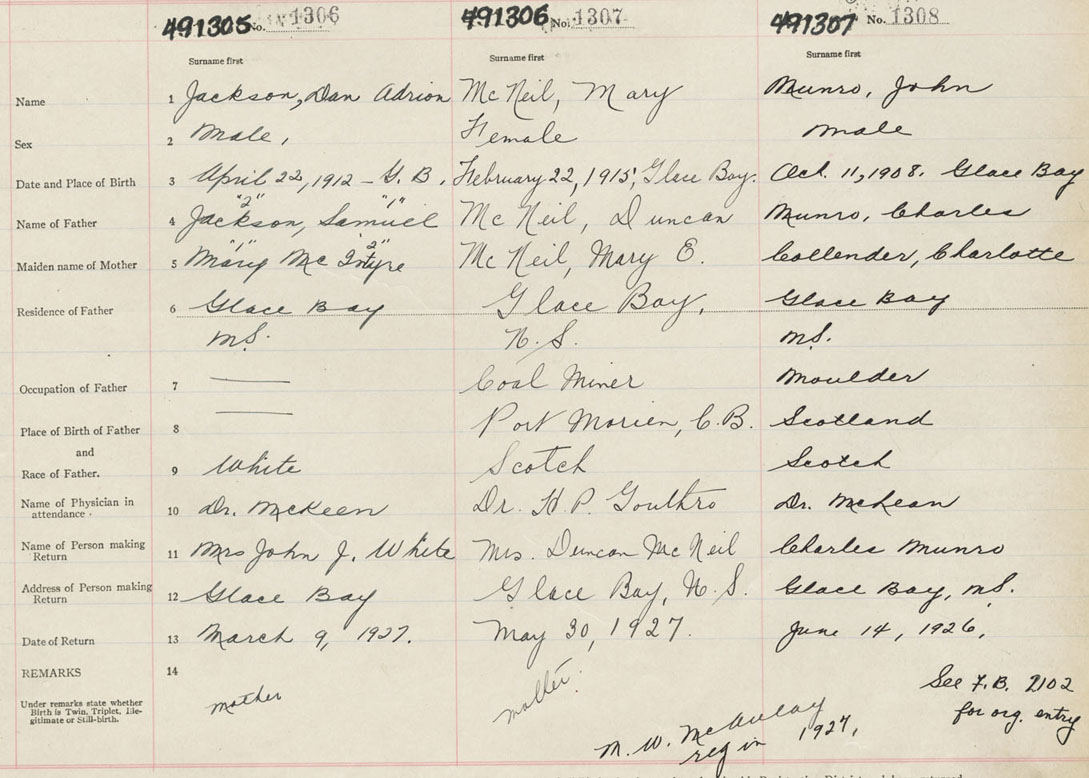 491305 No. 1306 491306 No. 1307 491307 No. 1308
Surname first Surname first Surname first
Name 1 Jackson, Dan Adrion McNeil, Mary Munro, John
Sex 2 Male, Female Male
Date and Place of Birth 3 April 22, 1912 - G.B. February 22, 1915, Glace Bay. Oct. 11, 1908. Glace Bay
"2" "1"
Name of Father 4 Jackson, Samuel McNeil, Duncan Munro, Charles
"1" "2"
Maiden name of Mother 5 Mary McIntyre McNeil, Mary E. Collender, Charlotte
Residence of Father 6 Glace Bay Glace Bay, Glace Bay
N.S. N.S. N.S.
Occupation of Father 7 — Coal Miner Moulder
Place of Birth of Father 8 — Port Morien, C.B. Scotland
and
Race of Father. 9 White Scotch Scotch
Name of Physician in
attendance. 10 Dr. McKeen Dr. H.P. Gouthro Dr. McKean
Name of Person making
Return 11 Mrs John J. White Mrs. Duncan McNeil Charles Munro
Address of Person making
Return 12 Glace Bay Glace Bay, N.S. Glace Bay, N.S.
Date of Return 13 March 9, 1927. May 30, 1927. June 14, 1926,
REMARKS 14
Under remarks state whether
Birth is Twin, Triplet, Ille-
gitimate or Still-birth.
mother mother.
See F.B. 2102
for org. entry
M. W. McAulay
reg in 1927,